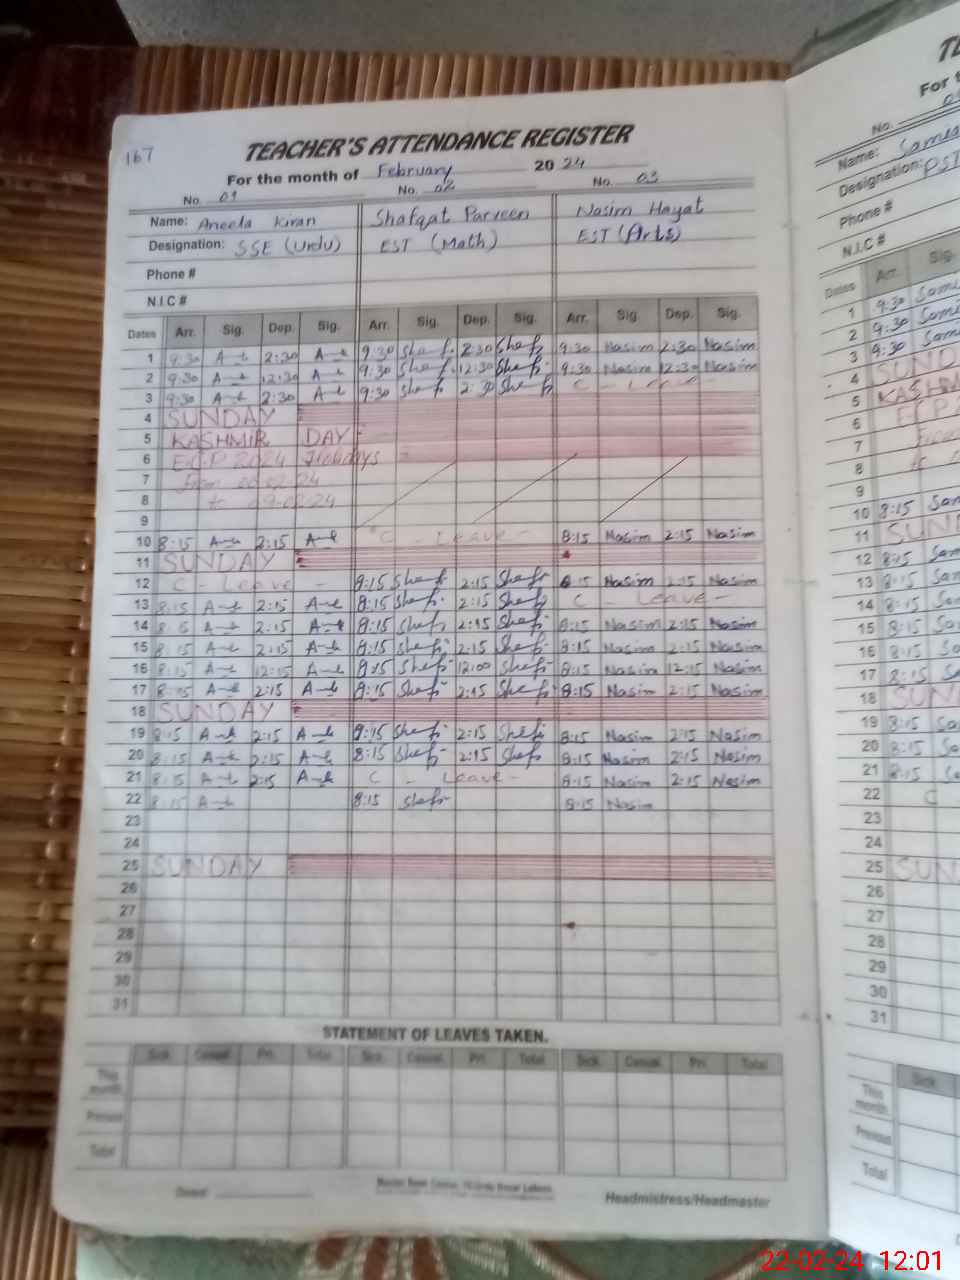 167
TEACHER'S ATTENDANCE REGISTER
For the month of February 2024
No. 01 No. 02 No. 03
Name: Aneela Kiran Shafqat Parveen Nasim Hayat
Designation: SSE (Urdu) EST (Math) EST (Arts)
Phone #
N.I.C #
Dates Arr. Sig. Dep. Sig. Arr. Sig. Dep. Sig. Arr. Sig. Dep. Sig.
1 9:30 2:30 9:30 Shafi 2:30 Shafi 9:30 Nasim 2:30 Nasim
2 9:30 12:30 9:30 Shafi 12:30 Shafi 9:30 Nasim 12:30 Nasim
3 9:30 2:30 9:30 Shafi 2:30 Shafi C - Leave -
4 SUNDAY
5 KASHMIR DAY
6 E.C.P 2024 Holidays
7 from 06-02-24
8 to 09-02-24
9
10 8:15 2:15 C - Leave - 8:15 Nasim 2:15 Nasim
11 SUNDAY
12 C - Leave - 8:15 Shafi 2:15 Shafi 8:15 Nasim 2:15 Nasim
13 8:15 2:15 8:15 Shafi 2:15 Shafi C - Leave -
14 8:15 2:15 8:15 Shafi 2:15 Shafi 8:15 Nasim 2:15 Nasim
15 8:15 2:15 8:15 Shafi 2:15 Shafi 8:15 Nasim 2:15 Nasim
16 8:15 12:15 8:15 Shafi 12:00 Shafi 8:15 Nasim 12:15 Nasim
17 8:15 2:15 8:15 Shafi 2:15 Shafi 8:15 Nasim 2:15 Nasim
18 SUNDAY
19 8:15 2:15 8:15 Shafi 2:15 Shafi 8:15 Nasim 2:15 Nasim
20 8:15 2:15 8:15 Shafi 2:15 Shafi 8:15 Nasim 2:15 Nasim
21 8:15 2:15 C - Leave - 8:15 Nasim 2:15 Nasim
22 8:15 8:15 Shafi 8:15 Nasim
23
24
25 SUNDAY
26
27
28
29
30
31
STATEMENT OF LEAVES TAKEN.
Sick. Casual. Pri. Total Sick. Casual. Pri. Total Sick. Casual. Pri. Total
This month
Previous
Total
Dated
Headmistress/Headmaster
For t
No.
Name: Samia
Designation: PST
Phone #
N.I.C #
Dates Arr. Sig.
1 9:30
2 9:30
3 9:30
4
5
6
7
8
9
10 8:15
11
12 8:15
13 8:15
14 8:15
15 8:15
16 8:15
17 8:15
18
19 8:15
20 8:15
21 8:15
22 C
23
24
25
26
27
28
29
30
31
Sick.
This month
Previous
Total
22-02-24 12:01